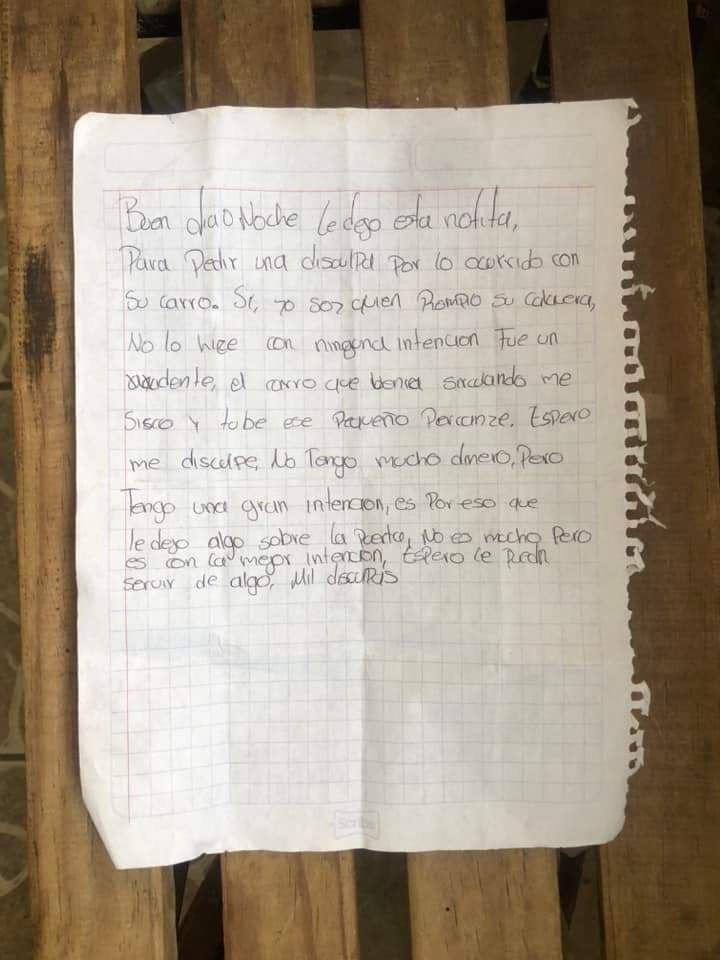 Buen dia o Noche le dejo esta notita,
Para Pedir una disculpa Por lo ocurrido con
Su carro. Si, yo soy quien Rompio su calavera,
No lo hize con ninguna intencion Fue un
el carro que benia circulando me
Sisco y tube ese Pequeño Percanze. Espero
me disculpe, No Tengo mucho dinero, Pero
Tengo una gran intencion, es Por eso que
le dejo algo sobre la Puerta, No es mucho Pero
es con la mejor intencion, Espero le Pueda
servir de algo, Mil disculpas
Scribe